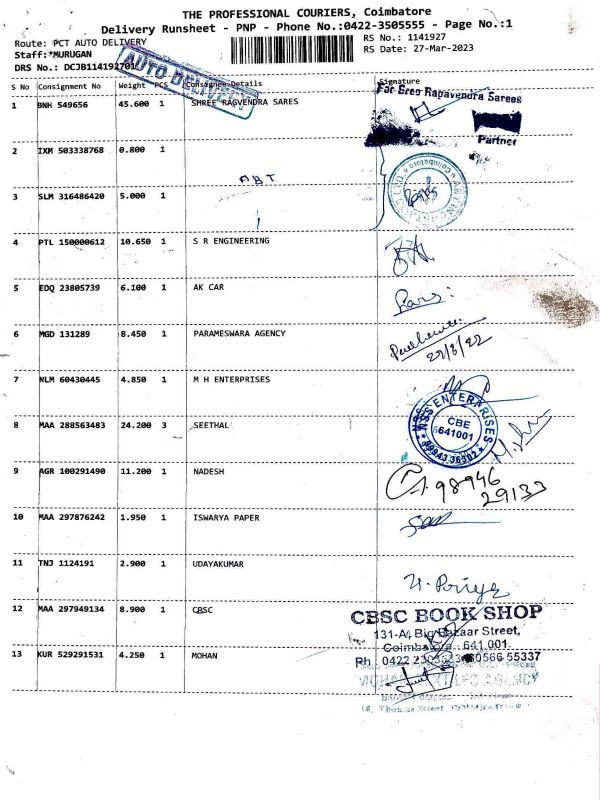 THE PROFESSIONAL COURIERS, Coimbatore
Delivery Runsheet - PNP - Phone No.:0422-3505555 - Page No.:1
Route: PCT AUTO DELIVERY
RS No.: 1141927
Staff:*MURUGAN
RS Date: 27-Mar-2023
DRS No.: DCJB114192701
AUTO DELIVERY
S No Consignment No Weight PCS Consignee Details Signature
1 BNH 549656 45.600 1 SHREE RAGVENDRA SARES
For Sree Ragavendra Sarees
Partner
2 IXM 503338768 0.800 1
ABT
3 SLM 316486420 5.000 1
4 PTL 150000612 10.650 1 S R ENGINEERING
5 EDQ 23805739 6.100 1 AK CAR
6 MGD 131289 8.450 1 PARAMESWARA AGENCY
7 NLM 60430445 4.850 1 M H ENTERPRISES
8 MAA 288563483 24.200 3 SEETHAL
NSS ENTERPRISES
CBE
641001
9 AGR 100291490 11.200 1 NADESH
98946
29133
10 MAA 297876242 1.950 1 ISWARYA PAPER
11 TNJ 1124191 2.900 1 UDAYAKUMAR
12 MAA 297949134 8.900 1 CBSC
CBSC BOOK SHOP
131-A, Big Bazaar Street,
Coimbatore - 641 001.
13 KUR 529291531 4.250 1 MOHAN
Ph 0422
55337